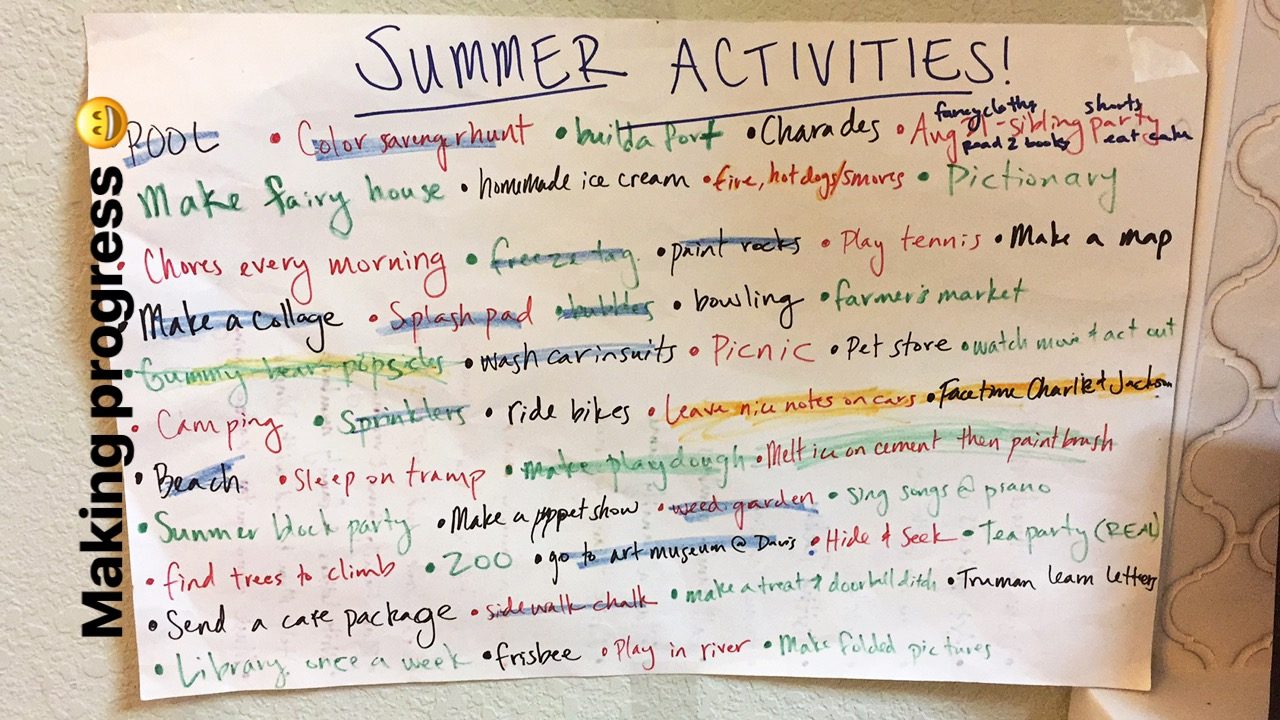 SUMMER ACTIVITIES!
fancy clothes shorts
POOL • Color savengerhunt • build a fort • Charades • Aug 31 - sibling party
read 2 books eat cake
Make fairy house • homemade ice cream • fire, hotdogs/smores • Pictionary
• Chores every morning • freeze tag • paint rocks • Play tennis • Make a map
Make a collage • Splash pad • bubbles • bowling • farmer's market
• Gummy bear popsicles • wash car in suits • Picnic • Pet store • watch movie & act out
• Camping • Sprinklers • ride bikes • Leave nice notes on cars • Facetime Charlie & Jackson
• Beach • Sleep on tramp • make playdough • Melt ice on cement then paintbrush
• Summer block party • Make a puppet show • weed garden • sing songs @ piano
• find trees to climb • ZOO • go to art museum @ Davis • Hide & Seek • Tea party (REAL)
• Send a care package • sidewalk chalk • make a treat & doorbell ditch • Truman learn letters
• Library once a week • frisbee • Play in river • Make folded pictures
Making progress 😄